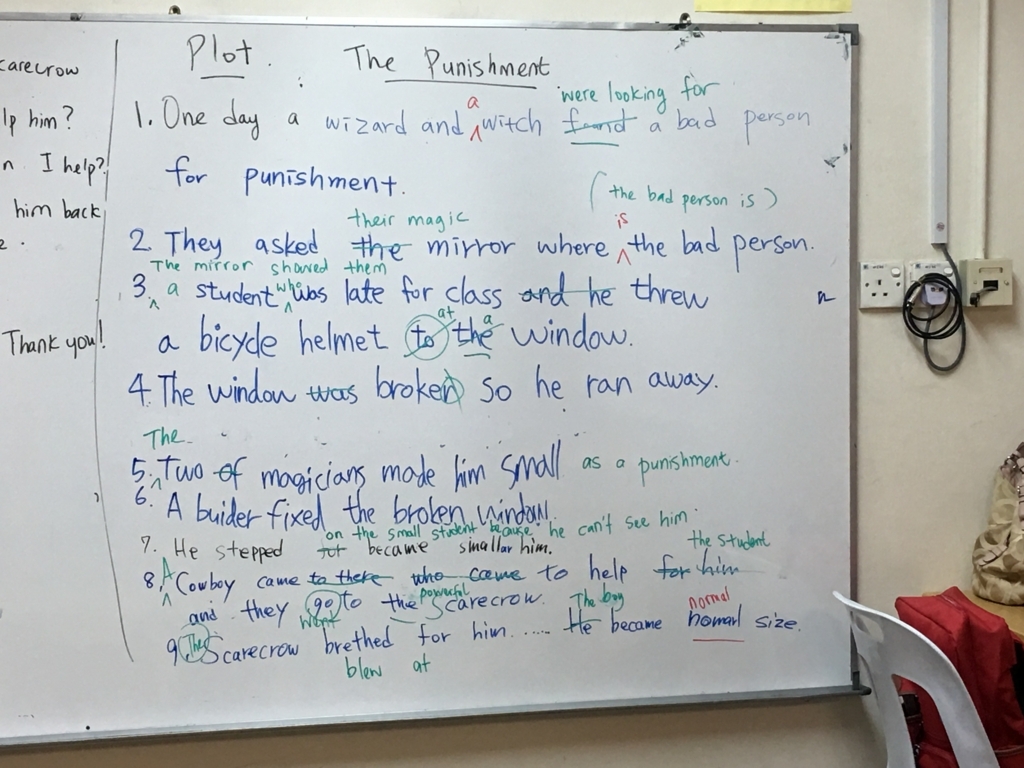 carecrow
lp him?
n I help?
him back
Thank you!
Plot.
The Punishment
were looking for
a
1. One day a wizard and witch found a bad person
for punishment.
(the bad person is)
their magic
is
2. They asked the mirror where the bad person.
The mirror showed them
who
3. a student was late for class and he threw
at a
a bicycle helmet to the window.
4. The window was broken so he ran away.
The
5. Two of magicians made him small as a punishment.
6. A buider fixed the broken window.
on the small student because he can't see him.
7. He stepped became smallar him.
the student
A
8. Cowboy came to there who came to help for him
powerful
The boy
normal
and they go to the scarecrow.
went
9. The Scarecrow brethed for him...... He became nomarl size.
blew at